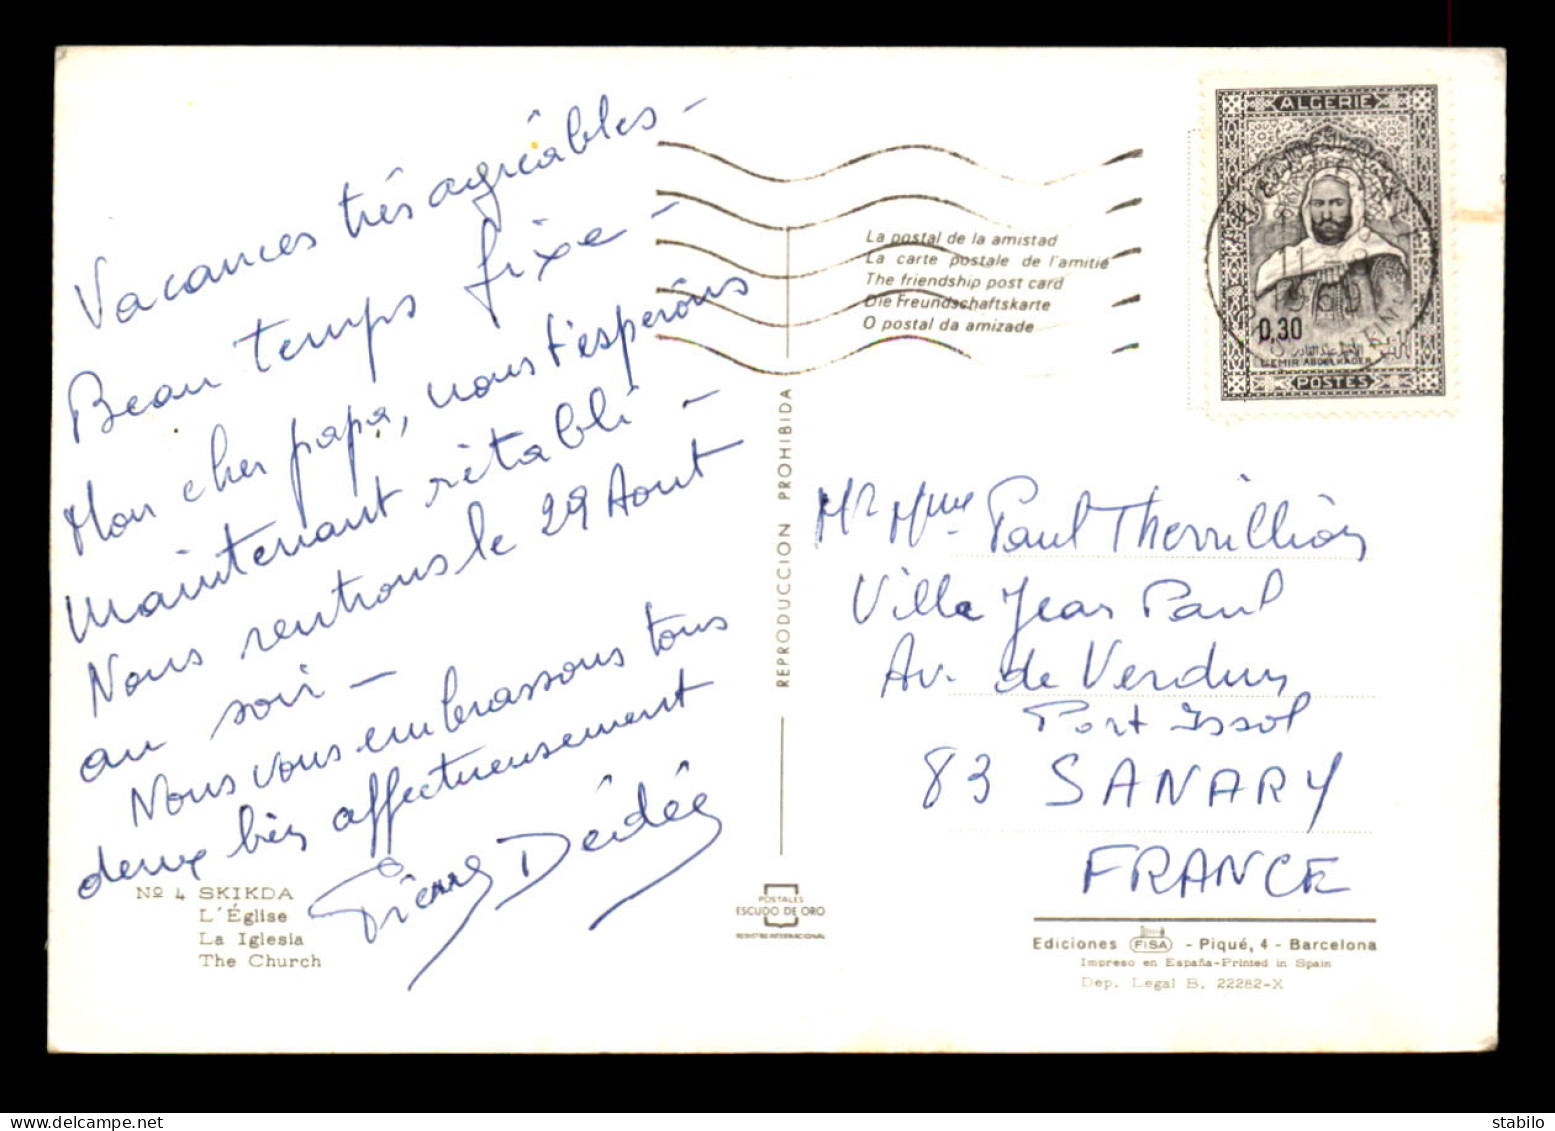 Vacances très agréables -
Beau temps fixe -
Mon cher papa, nous t'espérons
maintenant rétabli -
Nous rentrons le 29 Aout -
au soir -
Nous vous embrassons tous
deux bien affectueusement
Pierre Dédée
Nº 4 SKIKDA
L'Église
La Iglesia
The Church
REPRODUCCION PROHIBIDA
POSTALES
ESCUDO DE ORO
REGISTRO INTERNACIONAL
La postal de la amistad
La carte postale de l'amitié
The friendship post card
Die Freundschaftskarte
O postal da amizade
ALGERIE
0,30
الأمير عبد القادر
L'EMIR ABDELKADER
POSTES
Mr Mme Paul Thevillion
Villa Jean Paul
Av. de Verdun
Port Issol
83 SANARY
FRANCE
Ediciones FISA - Piqué, 4 - Barcelona
Impreso en España-Printed in Spain
Dep. Legal B. 22282-X
stabilo